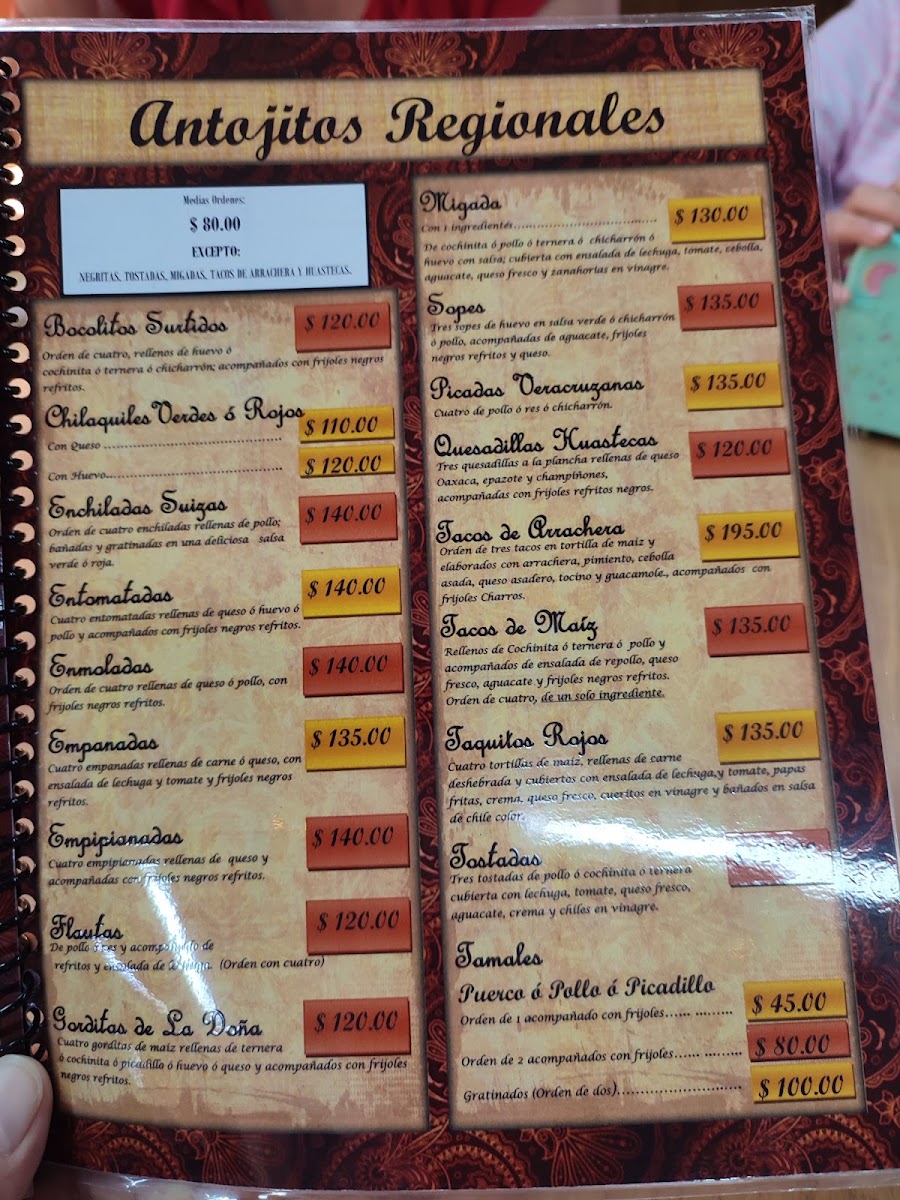 Antojitos Regionales
Medias Ordenes:
$ 80.00
EXCEPTO:
NEGRITAS, TOSTADAS, MIGADAS, TACOS DE ARRACHERA Y HUASTECAS.
Bocolitos Surtidos $ 120.00
Orden de cuatro, rellenos de huevo ó
cochinita ó ternera ó chicharrón; acompañados con frijoles negros
refritos.
Chilaquiles Verdes ó Rojos
Con Queso ........................................... $ 110.00
Con Huevo........................................... $ 120.00
Enchiladas Suizas $ 140.00
Orden de cuatro enchiladas rellenas de pollo;
bañadas y gratinadas en una deliciosa salsa
verde ó roja.
Entomatadas $ 140.00
Cuatro entomatadas rellenas de queso ó huevo ó
pollo y acompañados con frijoles negros refritos.
Enmoladas $ 140.00
Orden de cuatro rellenas de queso ó pollo, con
frijoles negros refritos.
Empanadas $ 135.00
Cuatro empanadas rellenas de carne ó queso, con
ensalada de lechuga y tomate y frijoles negros
refritos.
Empipianadas $ 140.00
Cuatro empipianadas rellenas de queso y
acompañadas con frijoles negros refritos.
Flautas $ 120.00
De pollo ó res y acompañado de
refritos y ensalada de (Orden con cuatro)
Gorditas de La Doña $ 120.00
Cuatro gorditas de maíz rellenas de ternera
ó cochinita ó picadillo ó huevo ó queso y acompañados con frijoles
negros refritos.
Migada $ 130.00
Con 1 ingredientes...................................
De cochinita ó pollo ó ternera ó chicharrón ó
huevo con salsa; cubierta con ensalada de lechuga, tomate, cebolla,
aguacate, queso fresco y zanahorias en vinagre.
Sopes $ 135.00
Tres sopes de huevo en salsa verde ó chicharrón
ó pollo, acompañadas de aguacate, frijoles
negros refritos y queso.
Picadas Veracruzanas $ 135.00
Cuatro de pollo ó res ó chicharrón.
Quesadillas Huastecas $ 120.00
Tres quesadillas a la plancha rellenas de queso
Oaxaca, epazote y champiñones,
acompañadas con frijoles refritos negros.
Tacos de Arrachera $ 195.00
Orden de tres tacos en tortilla de maíz y
elaborados con arrachera, pimiento, cebolla
asada, queso asadero, tocino y guacamole., acompañados con
frijoles Charros.
Tacos de Maíz $ 135.00
Rellenos de Cochinita ó ternera ó pollo y
acompañados de ensalada de repollo, queso
fresco, aguacate y frijoles negros refritos.
Orden de cuatro, de un solo ingrediente.
Taquitos Rojos $ 135.00
Cuatro tortillas de maíz, rellenas de carne
deshebrada y cubiertos con ensalada de lechuga,y tomate, papas
fritas, crema, queso fresco, cueritos en vinagre y bañados en salsa
de chile color.
Tostadas
Tres tostadas de pollo ó cochinita ó ternera
cubierta con lechuga, tomate, queso fresco,
aguacate, crema y chiles en vinagre.
Tamales
Puerco ó Pollo ó Picadillo
Orden de 1 acompañado con frijoles...... ......... $ 45.00
Orden de 2 acompañados con frijoles...... ......... $ 80.00
Gratinados (Orden de dos)........................... $ 100.00